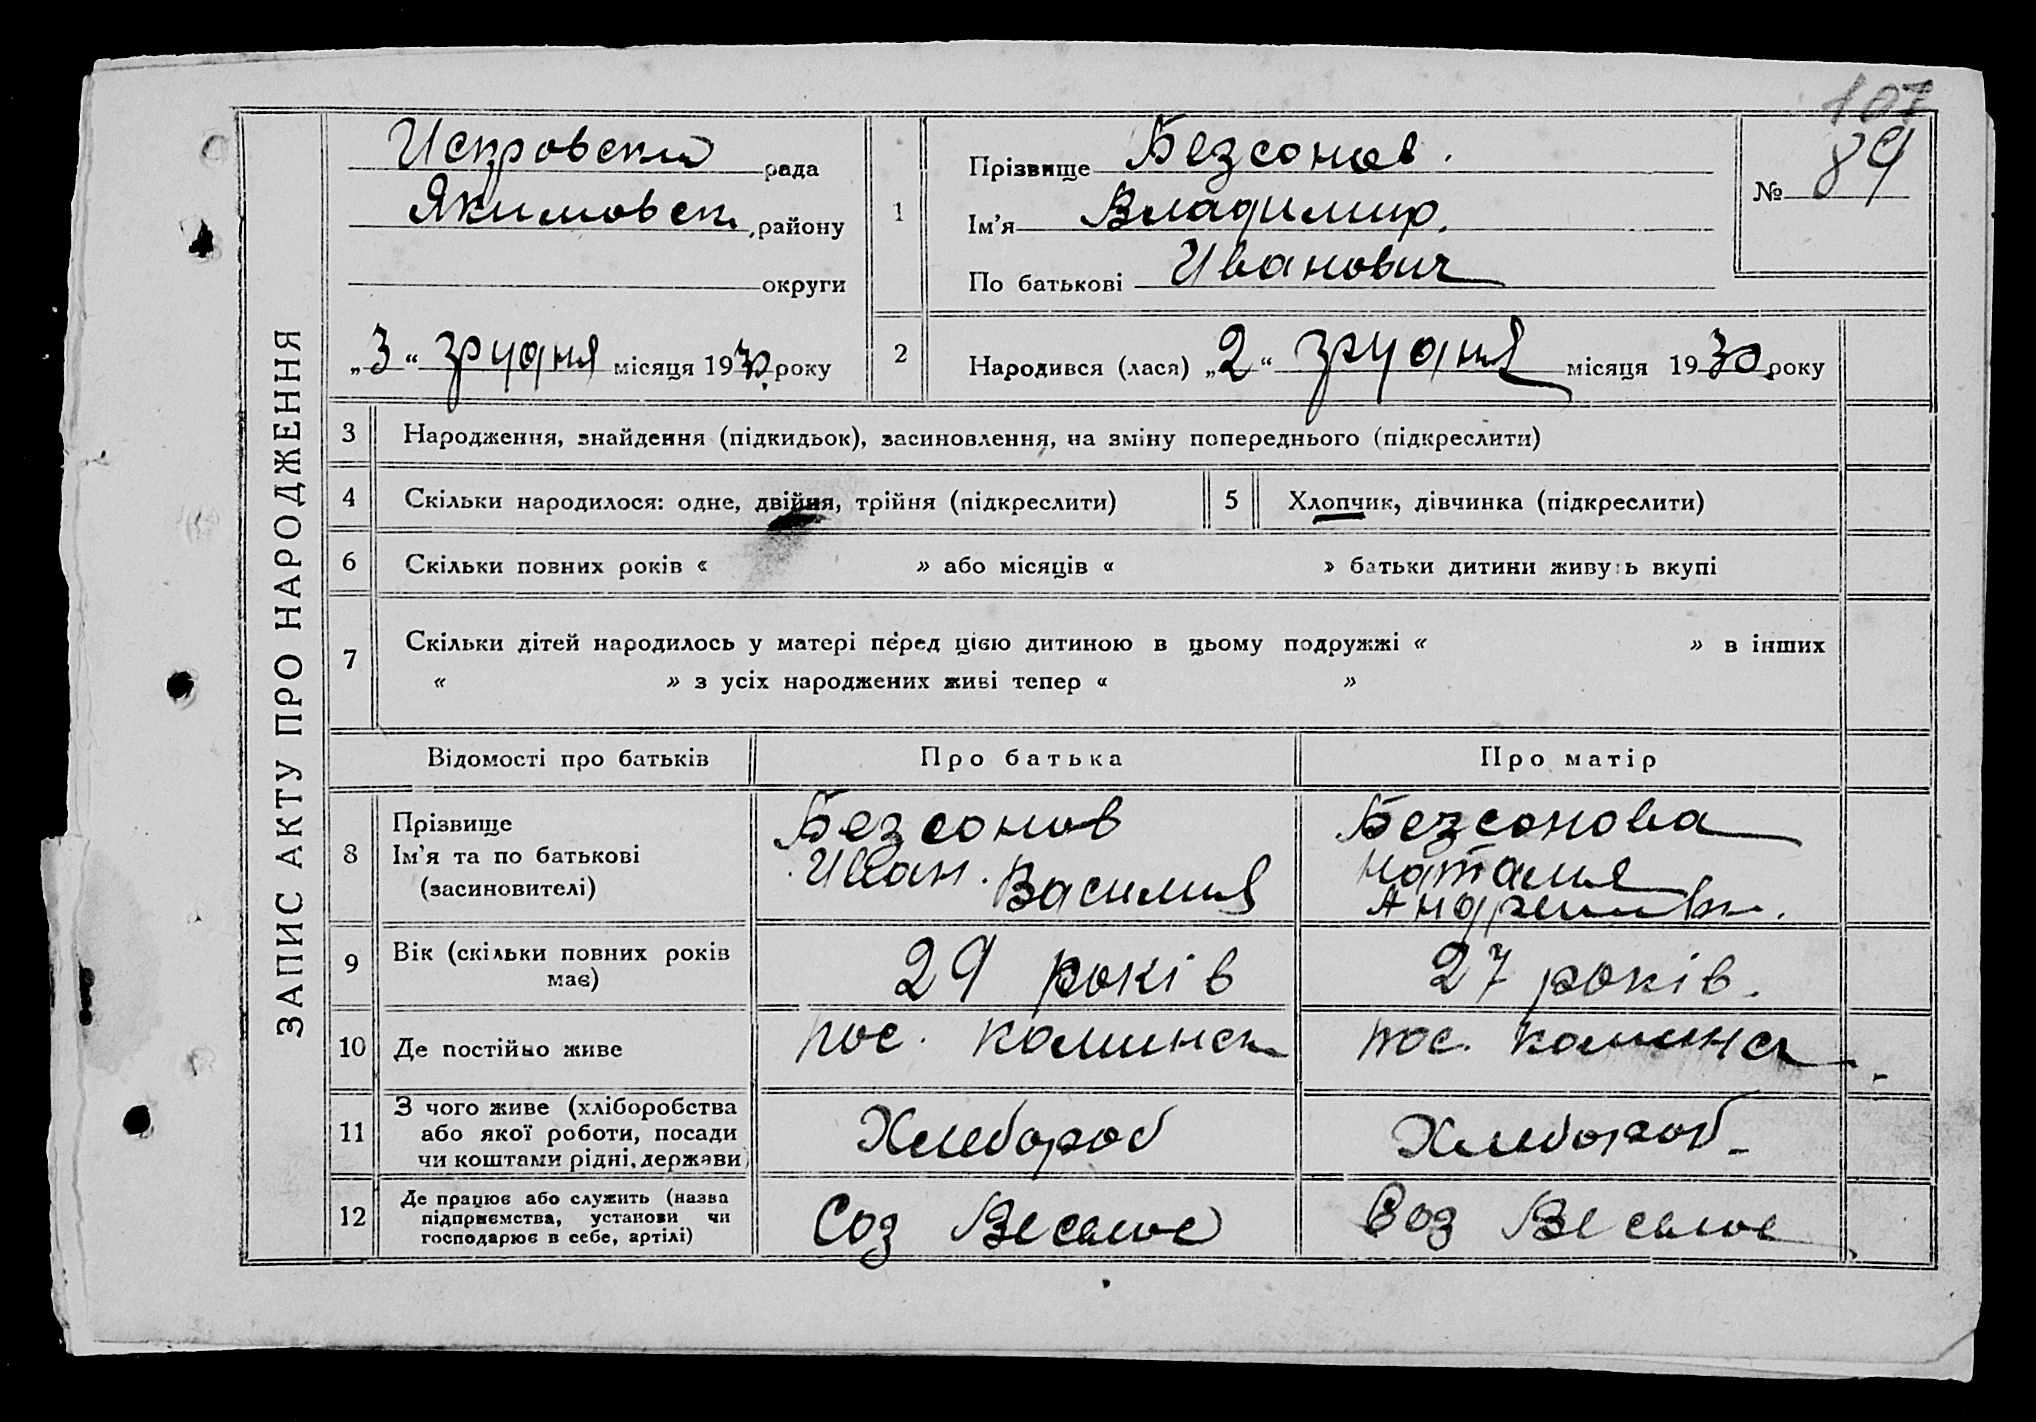 107
ЗАПИС АКТУ ПРО НАРОДЖЕННЯ
рада
Якимовск. району
округи
„3“ грудня місяця 1930 року
1
Прізвище Безсонов.
Ім'я Владимир.
По батькові Иванович
№ 89
2 Народився (лася) „2“ грудня місяця 1930 року
3 Народження, знайдення (підкидьок), засиновлення, на зміну попереднього (підкреслити)
4 Скільки народилося: одне, двійня, трійня (підкреслити)
5 Хлопчик, дівчинка (підкреслити)
6 Скільки повних років « » або місяців « » батьки дитини живуть вкупі
7 Скільки дітей народилось у матері перед цією дитиною в цьому подружжі « » в інших
« » з усіх народжених живі тепер « »
Відомості про батьків
Про батька
Про матір
8 Прізвище
Ім'я та по батькові
(засиновителі)
Безсонов
Иван. Василия
Безсонова
Наталия
9 Вік (скільки повних років
має)
29 років
27 років.
10 Де постійно живе
пос. Каминск
пос. Каминск
11 З чого живе (хліборобства
або якої роботи, посади
чи коштами рідні, держави)
Хлебороб
Хлебороб.
12 Де працює або служить (назва
підприємства, установи чи
господарює в себе, артілі)
Соз Веселое
Соз Веселое